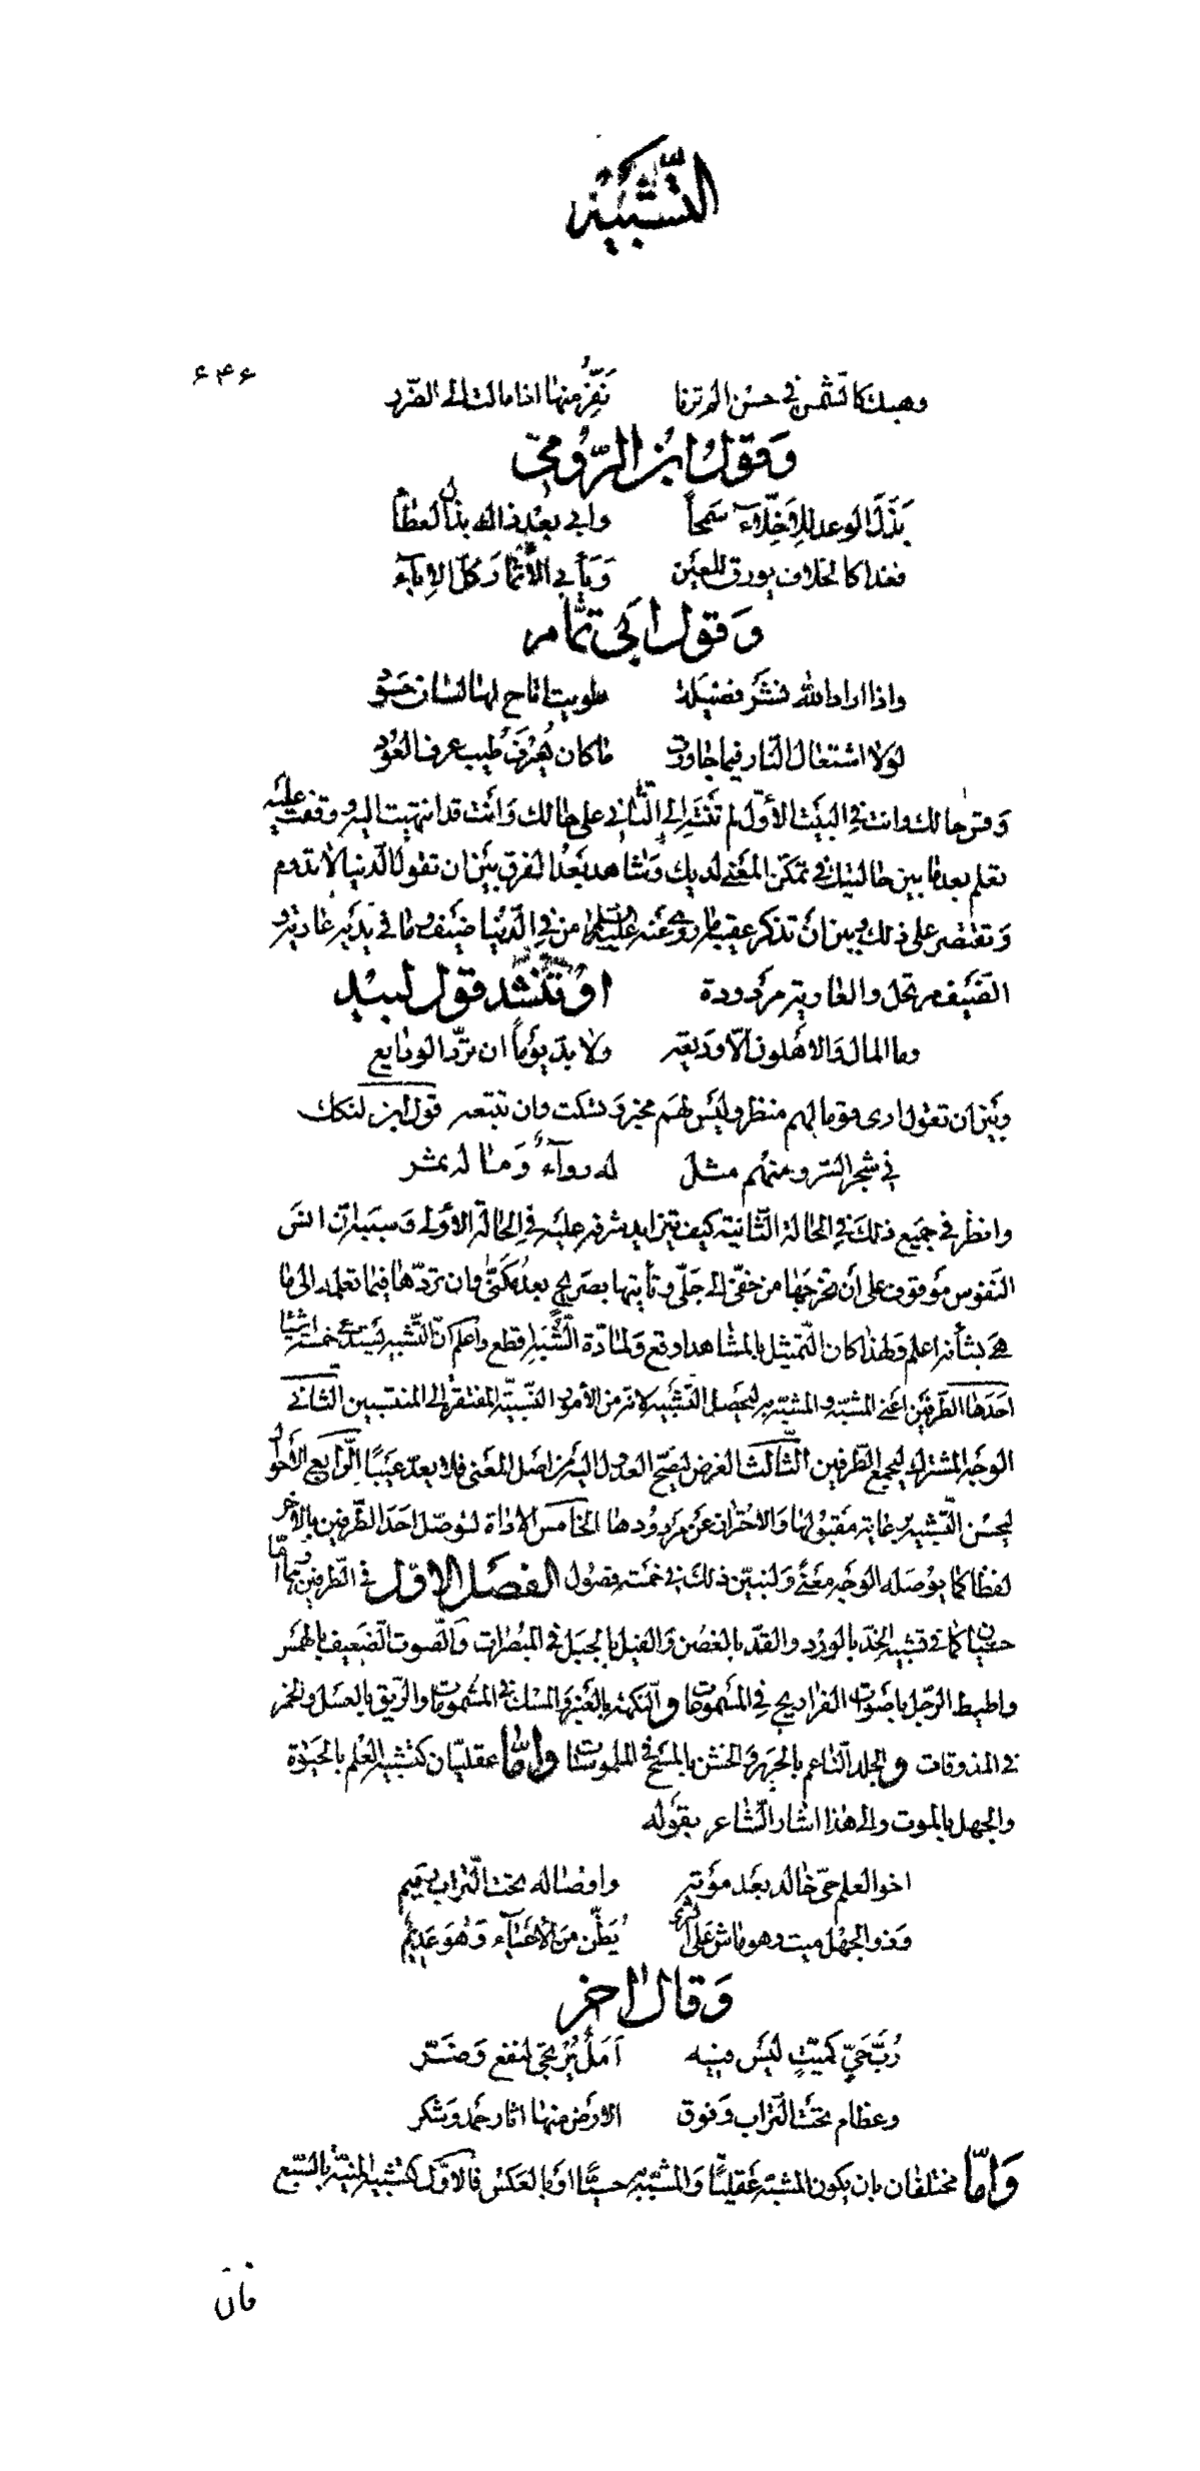 التَّشبيه
۶۴۶
وهبك كالشمس في حسن الم ترنا نَفِرُّ منها اذا مالت الى الضّرر
وَقول ابن الرّومي
بَذَلَ الوعد للاَخِلّآء سَمحاً وابى بعد ذاك بذل العطآء
فغدا كالخلاف يورق للعين وَيَأبى الأثمار كلّ الاِبآء
وَقول ابى تمّام
واذا اراد الله نشر فضيلة طويت اتاح لها لسان حسود
لولا اشتعال النار فيما جاورت ما كان يُعرَف طيب عرف العود
وَقس حالك وانت في البيت الأوّل لم تَنتَه الى الثّاني على حالك وَانت قد انتهيت اليه ووقفت عليه
تعلم بعد ما بين حالتيك في تمكّن المعنى لديك وَشاهد بَعُد الفرق بين ان تقول الدّنيا لا تدوم
وَتقتصر على ذلك وبين اَن تذكر عقيبه ما روى عنه عليه السلام من في الدّنيا ضيف وما في يديه عارية و
الضّيف مرتحل والعارية مردودة اوْ تُنشد قول لبيد
وما المال وَالاهلون الّا وديعة ولا بدّ يوماً ان تردّ الودايع
وبين ان تقول ارى قوما لهم منظر وليس لهم مخبر وتسكت وان تتبعه قول ابن لنكك
في شجر السّرو منهم مثل له روآء وَما له ثمر
وانظر في جميع ذلك في الحالة الثّانية كيف تتزايد شرفه عليه في الحالة الاولى وسببه انّ انس
النفوس موقوف على اَن تخرجها من خفيّ الى جليّ وتأتيها بصريح بعد مكنّى وان تردّها فيما تعلمه الى ما
هي بشأنه اعلم ولهذا كان التمثيل بالمشاهد اوقع ولمادّة الشّبه اقطع واعلم انّ التّشبيه يستدعى خمسة اشيا
احدها الطّرفين اعني المشبّه والمشبّه به ليحصل التشبيه لانّه من الأمور النّسبيّة المفتقرة الى المنتسبين الثاني
الوجه المشترك ليجمع الطّرفين الثّالث الغرض ليصحّ العدول اليه من اصل المعنى فلا يعدّ عبثًا الرّابع الاحوال
لحسن التّشبيه برعاية مقبولها وَالاحتراز عن مردودها الخامس الاداة لتوصّل احد الطّرفين بالآخر
لفظا كما يوصله الوجه معنىً وَلنبيّن ذلك في خمسة فصول الفصل الاوّل في الطّرفين وهما امّا
حسّيان كما في تشبيه الخدّ بالورد والقدّ بالغصن وَالفيل بالجبل في المبصرات وَالصّوت الضّعيف بالهمس
واطيط الرّحل باصوات الفراريج في المسموعات والنكهة بالعنبر والمسك في المشمومات والرّيق بالعسل والخمر
في المذوقات والجلد النّاعم بالحرير والخشن بالمسح في الملموسات وامّا عقليّان كتشبيه العلم بالحيوة
والجهل بالموت والى هذا اشار الشّاعر بقوله
اخو العلم حيّ خالد بعد موته واوصاله تحت التّراب رميم
وَذو الجهل ميت وهو ماش على الثرى يُظنّ من الاحيآء وَهو عديم
وَقال اخر
رُبّ حيّ كميّت ليس فيه اَمل يُرتجى لنفع وَضرّ
وعظام تحت التّراب وَفوق الارض منها اثار حمد وَشكر
وَامّا مختلفان بان يكون المشبّه عقليًّا وَالمشبّه به حسيًّا او بالعكس فالاوّل كتشبيه المنيّة بالسّبع
فان